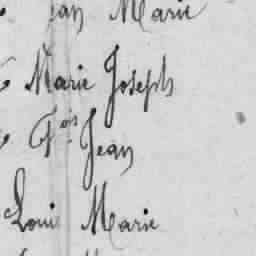 Jean Marie
Marie Joseph
Fᵒⁱˢ Jean
Louis Marie